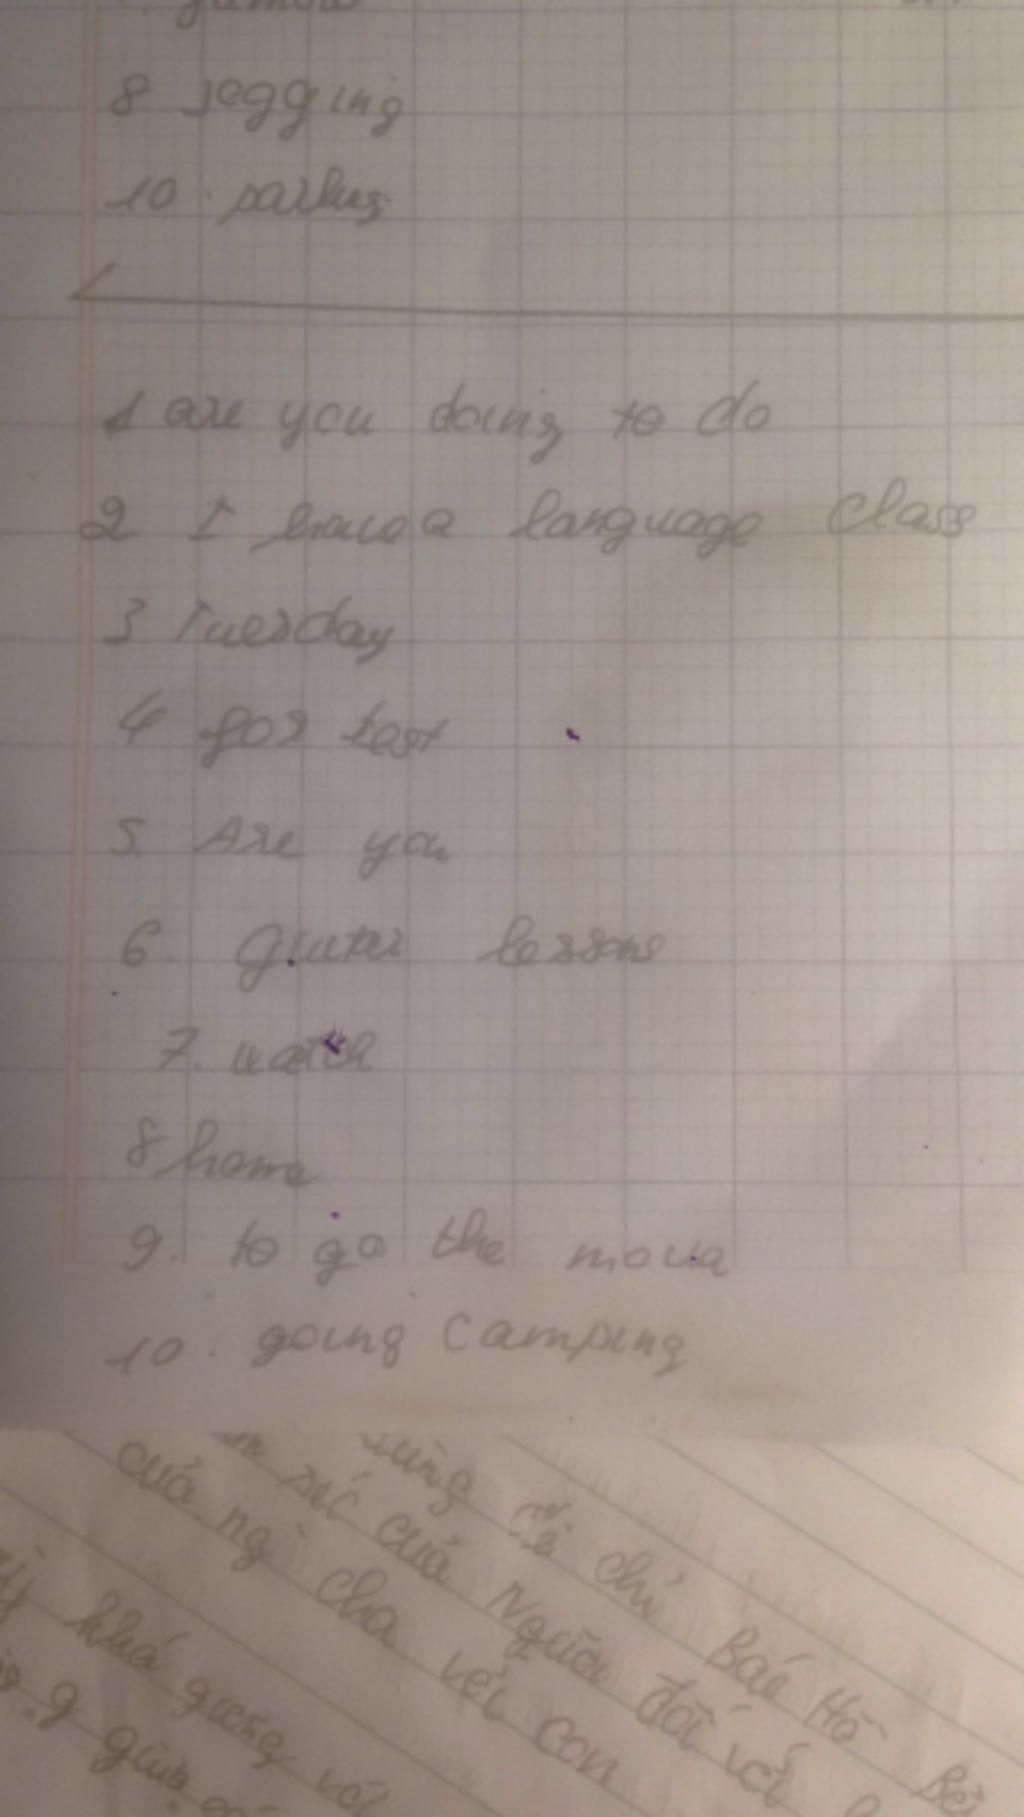 8 jegging
10. parkus
1 are you doing to do
2 I have a language class
3 Tuesday
4 for test
5. Are you
6. giutar lessons
7. watch
8 home
9. to go the movia
10. going camping
dùng để chỉ Bác Hồ Bề
sắc của Người đối với
của ng` cha với con
khá giống với
g giữa